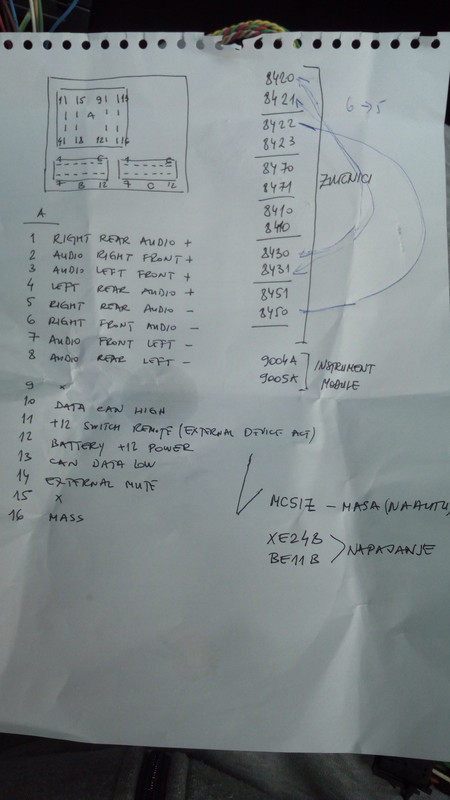 11 15 9 1 13
A
41 18 12 1 116
7 B 12 7 C 12
A
1 RIGHT REAR AUDIO +
2 AUDIO RIGHT FRONT +
3 AUDIO LEFT FRONT +
4 LEFT REAR AUDIO +
5 RIGHT REAR AUDIO -
6 RIGHT FRONT AUDIO -
7 AUDIO FRONT LEFT -
8 AUDIO REAR LEFT -
9 X
10 DATA CAN HIGH
11 +12 SWITCH REMOTE (EXTERNAL DEVICE ACT)
12 BATTERY +12 POWER
13 CAN DATA LOW
14 EXTERNAL MUTE
15 X
16 MASS
8420
8421
8422
8423
8470
8471
8410
8430
8431
8451
8450
6 → 5
ZVUCNICI
9004A
9005A
INSTRUMENT
MODULE
MC51Z - MASA (NA AUTU)
XE24B
BE11B
NAPAJANJE